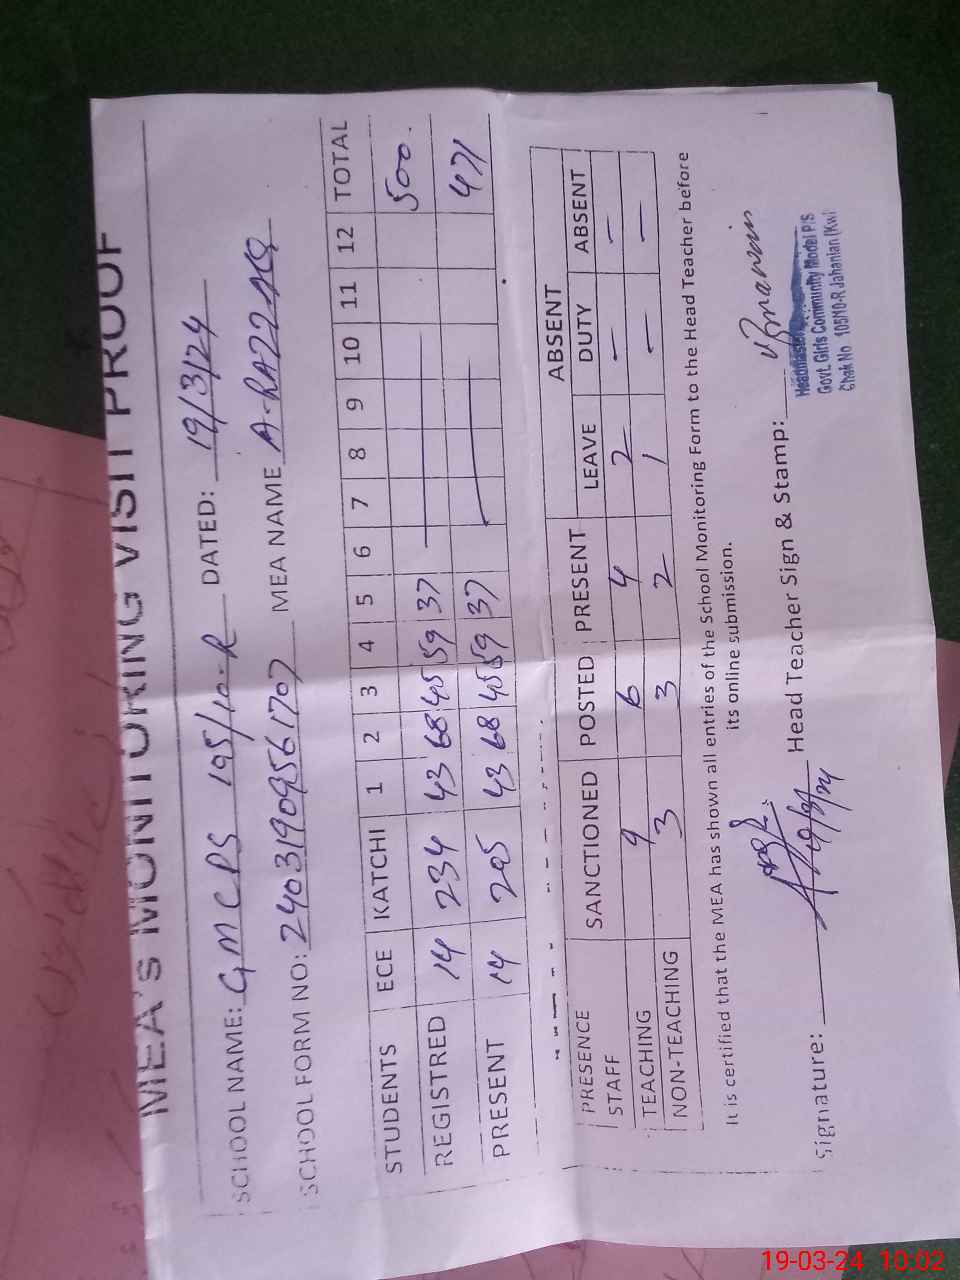 MEA's MONITORING VISIT PROOF
SCHOOL NAME: GMCPS 105/10-R DATED: 19/3/24
SCHOOL FORM NO: 24031909561707 MEA NAME A-RAZZAQ
STUDENTS ECE KATCHI 1 2 3 4 5 6 7 8 9 10 11 12 TOTAL
REGISTRED 14 234 43 68 45 59 37 500.
PRESENT 14 205 43 68 45 59 37 471
PRESENCE SANCTIONED POSTED PRESENT ABSENT
STAFF LEAVE DUTY ABSENT
TEACHING 9 6 4 2 — —
NON-TEACHING 3 3 2 1 — —
It is certified that the MEA has shown all entries of the School Monitoring Form to the Head Teacher before
its online submission.
Signature: 19/3/24 Head Teacher Sign & Stamp:
Govt. Girls Community Model P/S
Chak No 105/10-R Jahanian (Kwl
19-03-24 10:02